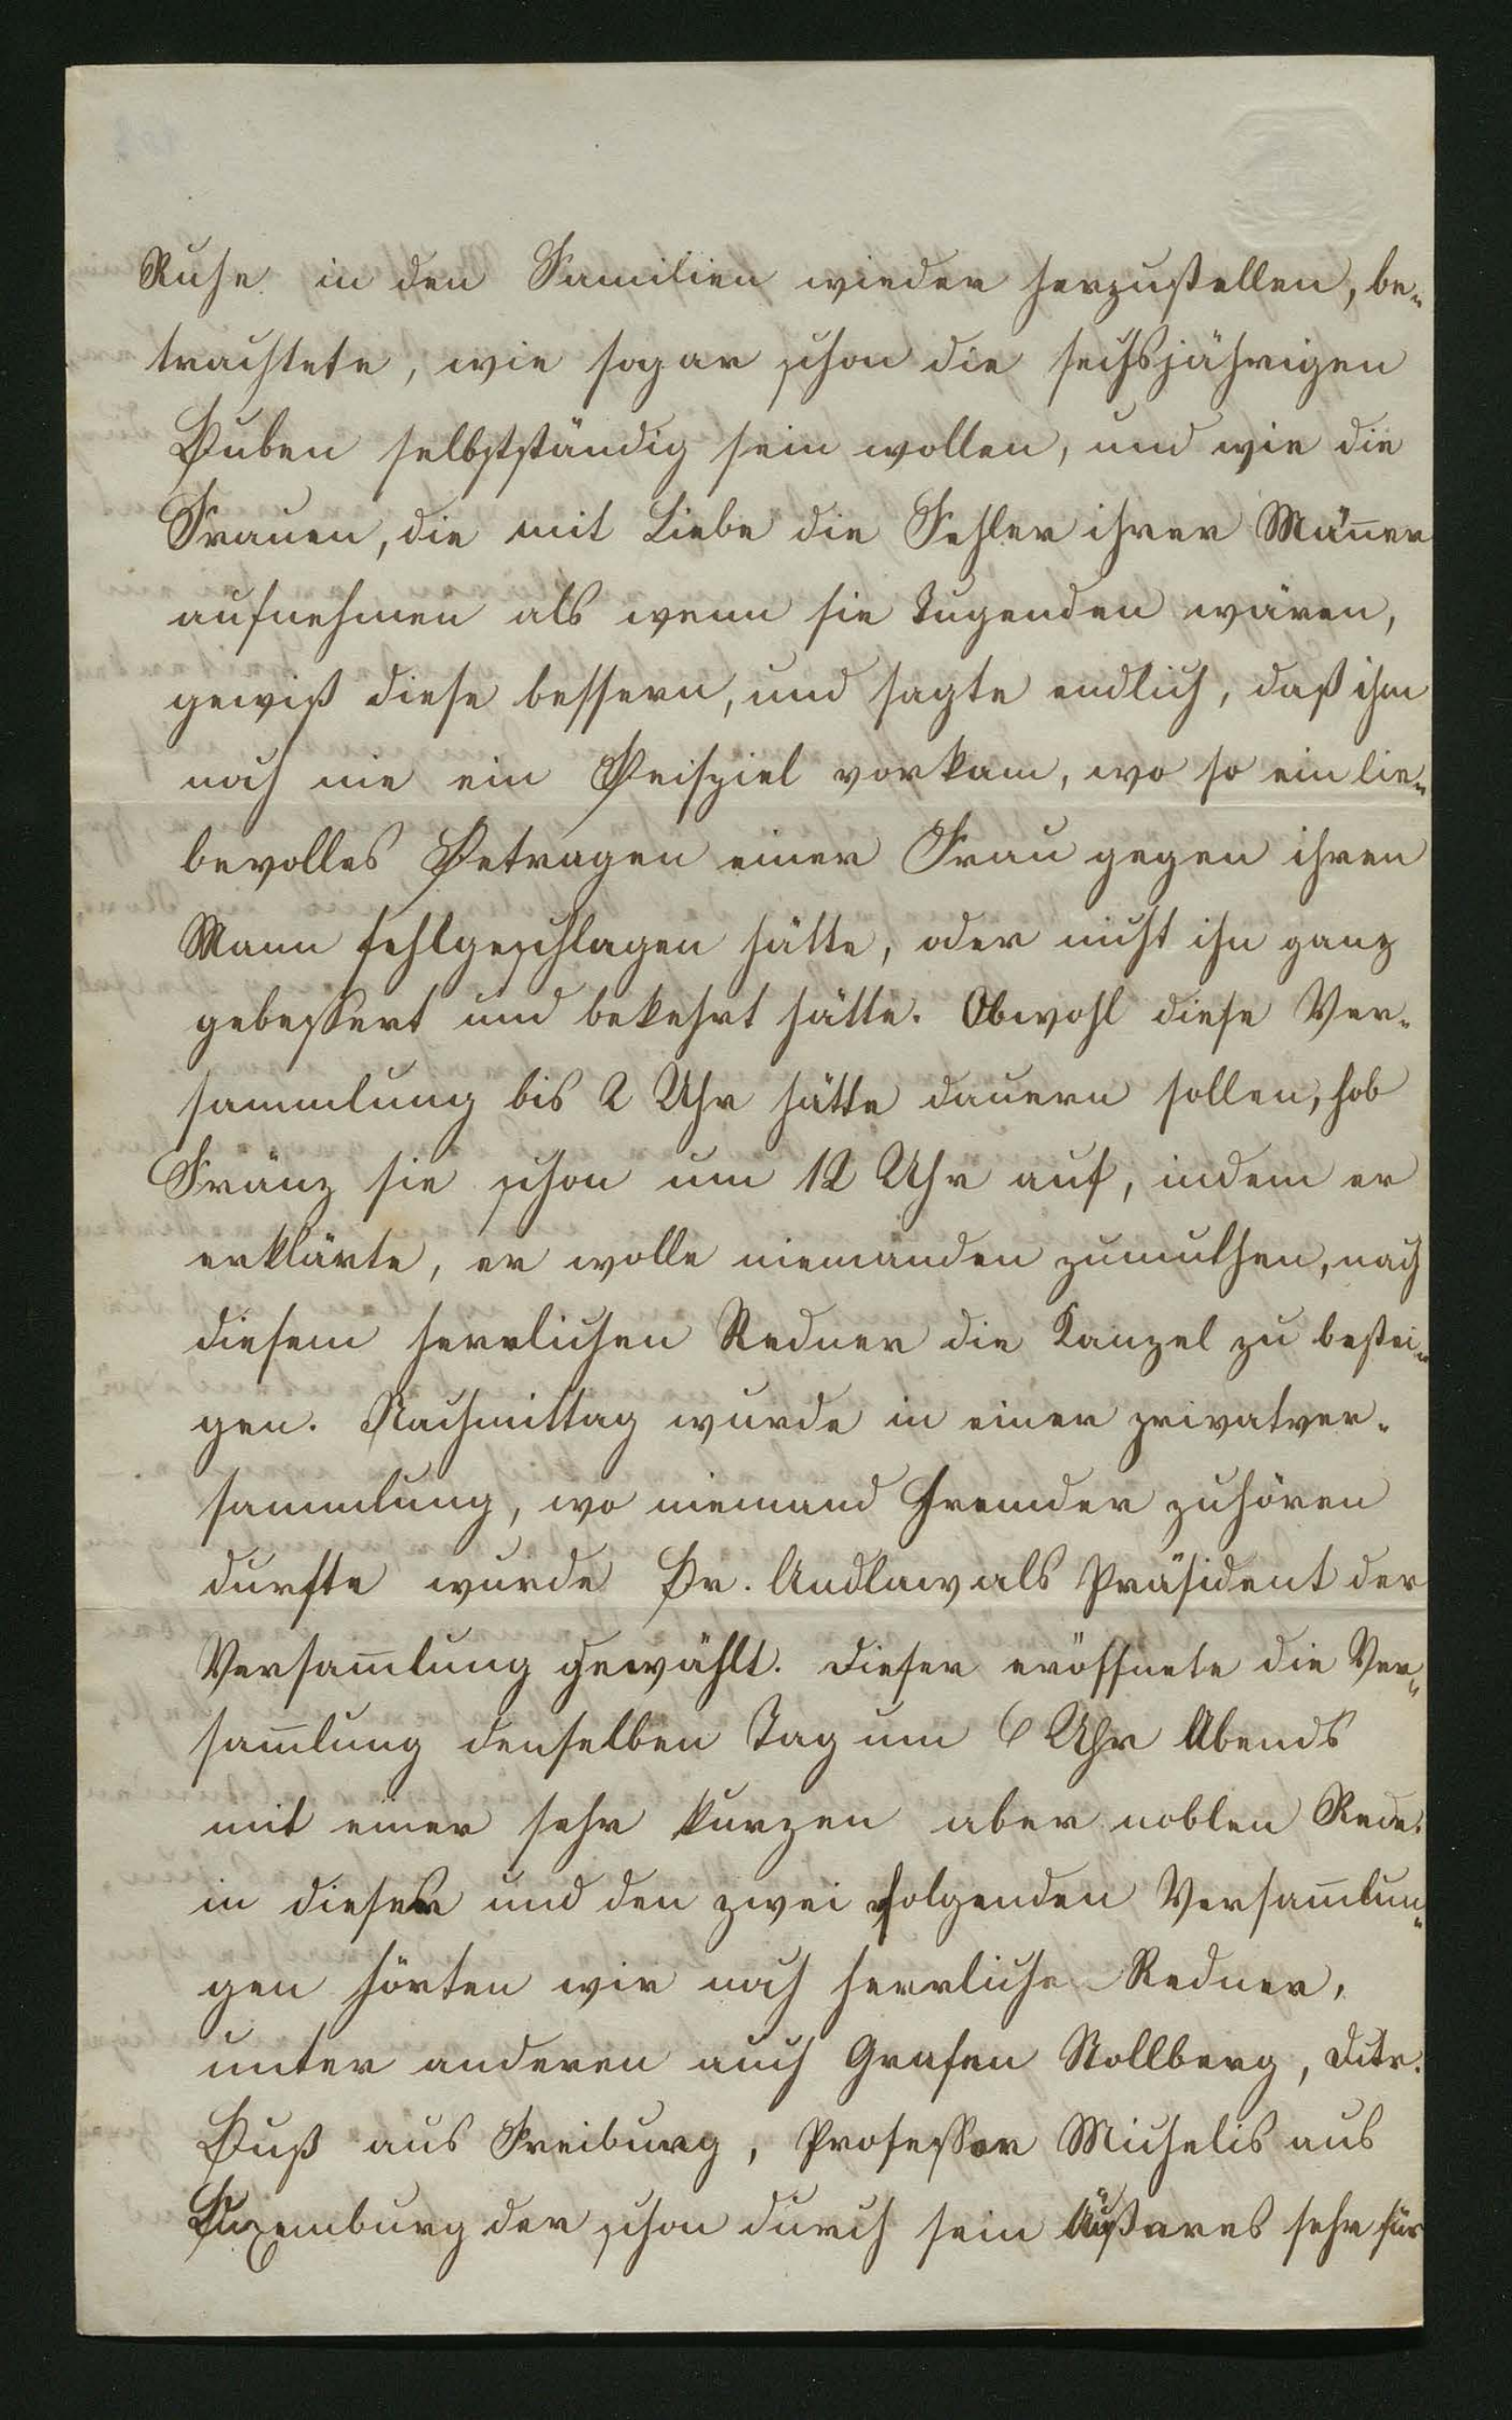 Ruhe in den Familien wieder herzustellen, be-
trachtete, wie sogar schon die sechsjährigen
Buben selbstständig sein wollen, und wie die
Frauen, die mit Liebe die Fehler ihrer Män̅er
aufnehmen als wenn sie Tugenden wären,
gewiß diese bessern, und sagte endlich, daß ihm
noch nie ein Beispiel vorkam, wo so ein lie-
bevolles Betragen einer Frau gegen ihren
Mann fehlgeschlagen hätte, oder nicht ihn ganz
gebessert und bekehrt hätte. Obwohl diese Ver-
sammlung bis 2 Uhr hätte dauern sollen, hob
Fränz sie schon um 12 Uhr auf, indem er
erklärte, er wolle niemanden zumuthen, nach
diesem herrlichen Redner die Kanzel zu bestei-
gen. Nachmittag wurde in einer privatver-
sammlung, wo niemand Fremder zuhören
durfte wurde Br. Andlaw als Präsident der
Versam̅lung gewählt. Dieser eröffnete die Ver-
sam̅lung denselben Tag um 6 Uhr Abends
mit einer sehr kurzen aber noblen Rede.
in dieser und den zwei folgenden Versam̅lun-
gen hörten wir noch herrliche Redner,
unter anderen auch Grafen Stollberg, Dctr.
Buß aus Freiburg, Professor Michelis aus
Luxemburg der schon durch sein Äußeres sehr für